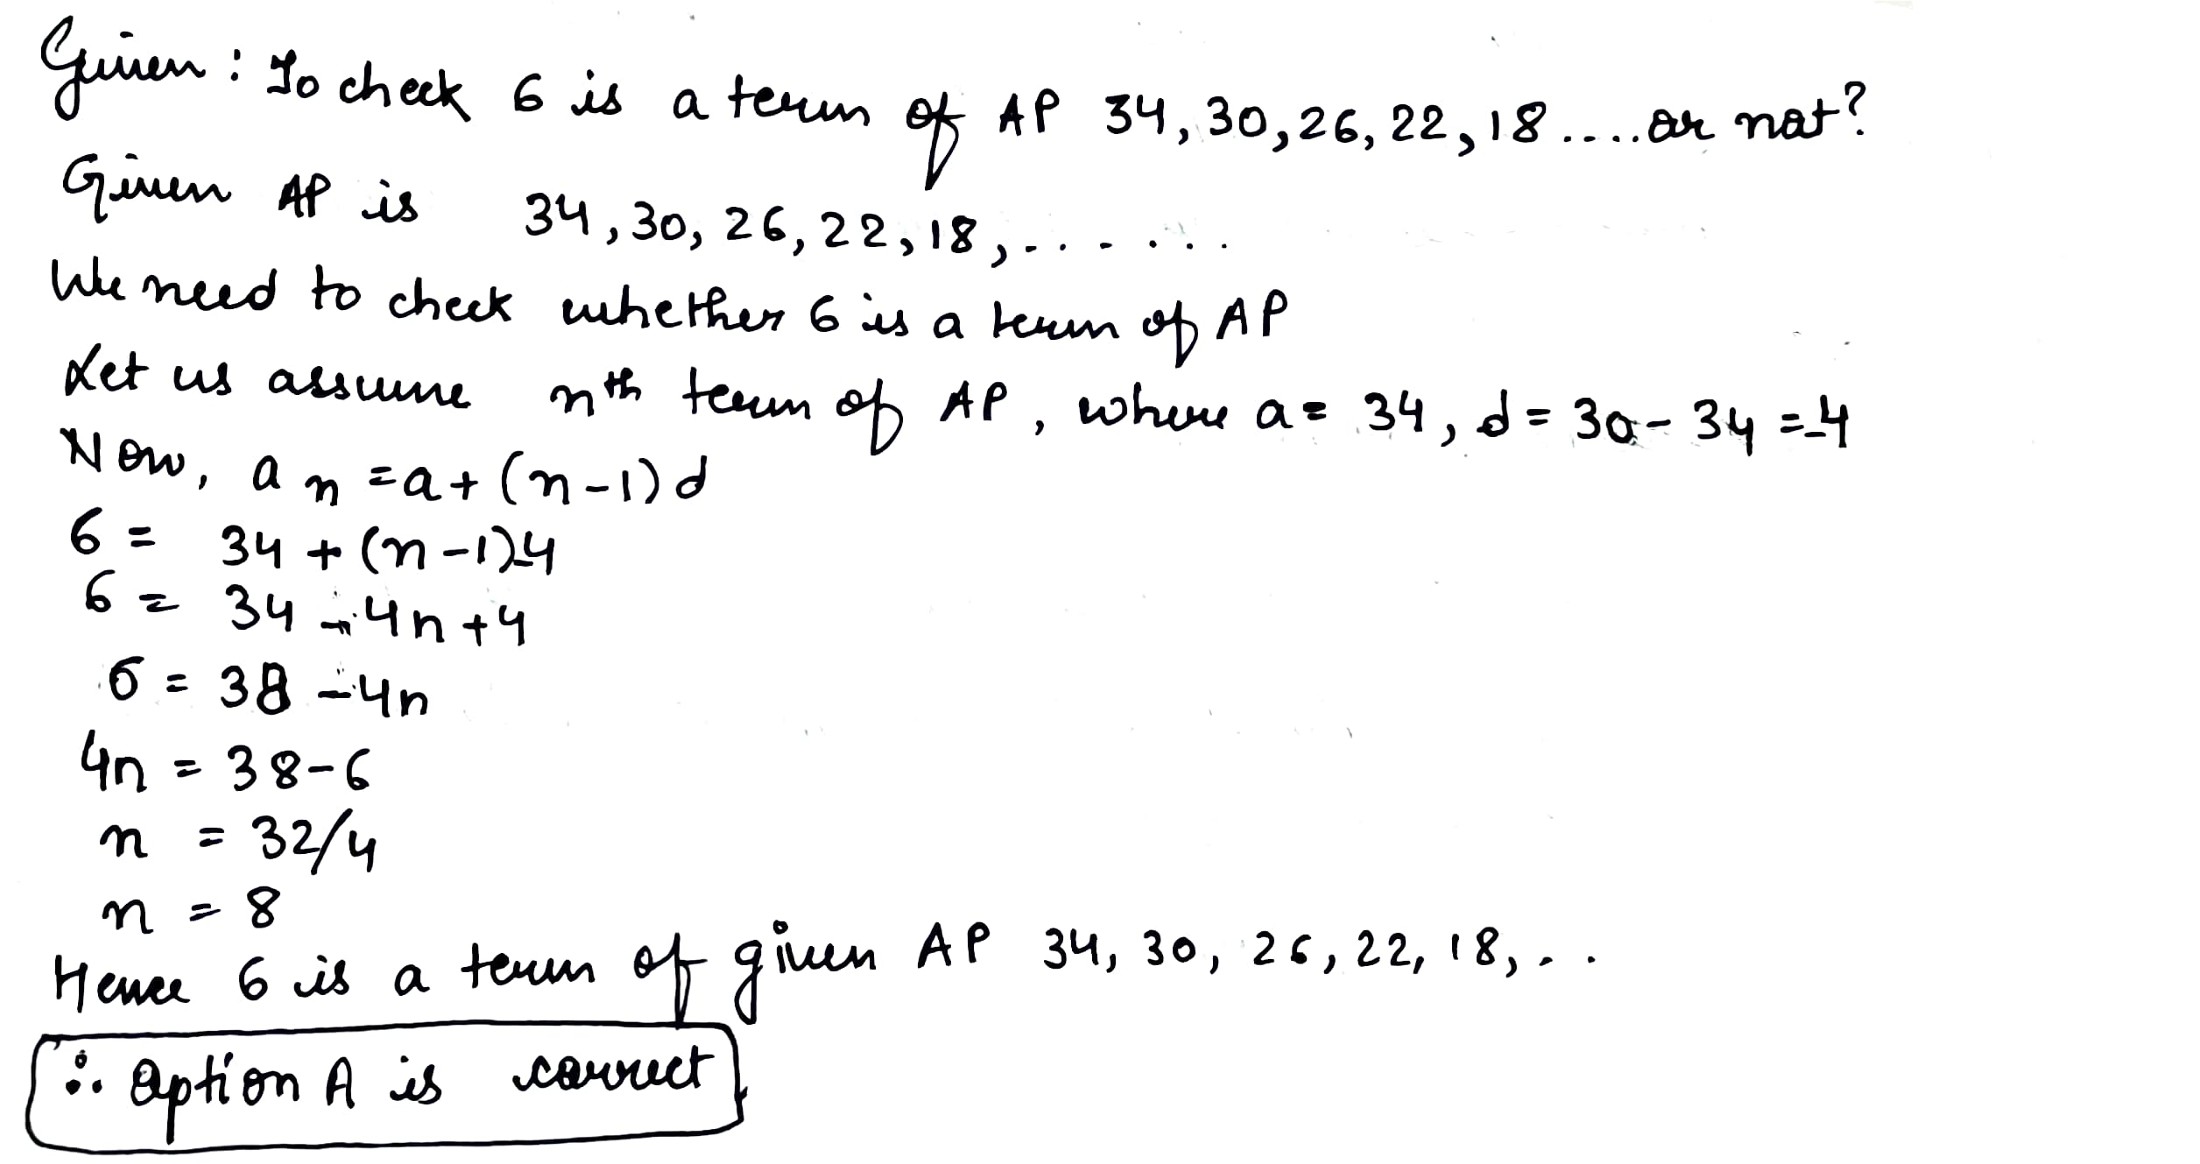 Given : To check 6 is a term of AP 34, 30, 26, 22, 18 ..... or not?
Given AP is 34, 30, 26, 22, 18, .......
We need to check whether 6 is a term of AP
Let us assume nth term of AP, where a = 34, d = 30 - 34 = -4
Now, an = a + (n-1) d
6 = 34 + (n-1)-4
6 = 34 - 4n + 4
6 = 38 - 4n
4n = 38-6
n = 32/4
n = 8
Hence 6 is a term of given AP 34, 30, 26, 22, 18, ..
∴ Option A is correct